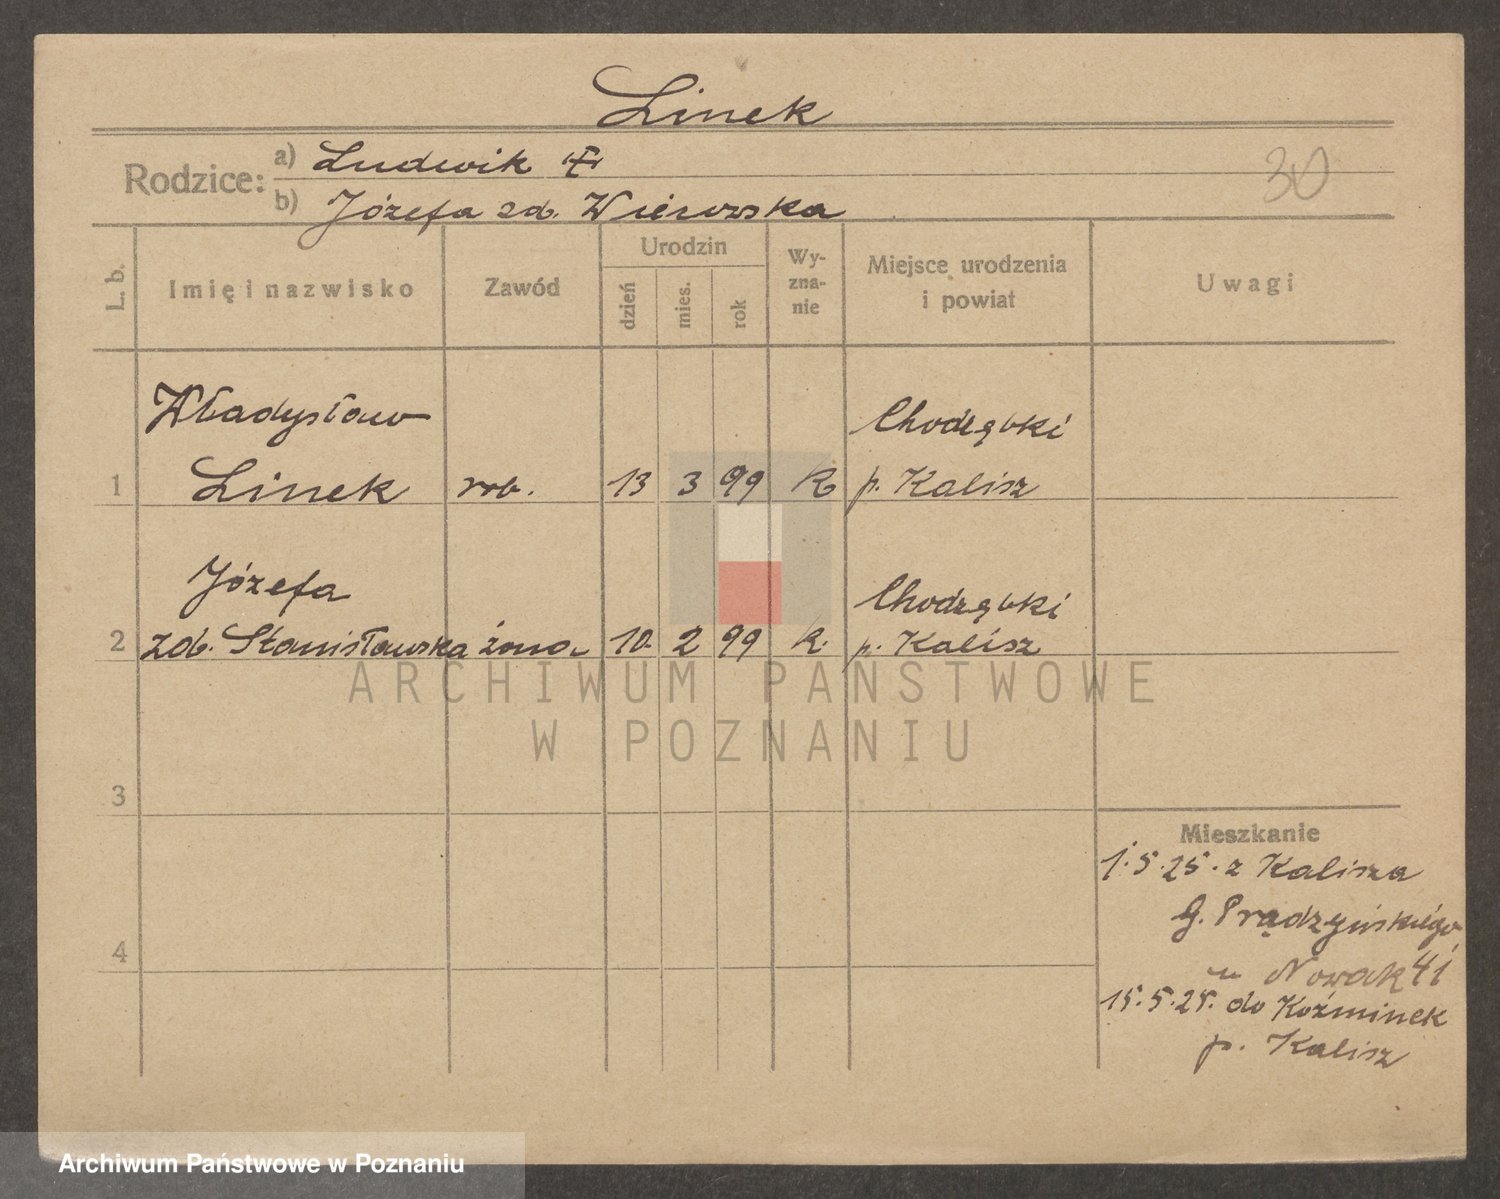 Linek
30
Rodzice:
a) Ludwik
b) Józefa zd. Wierowska
L. b.
Imię i nazwisko
Zawód
Urodzin
dzień
mies.
rok
Wy-
zna-
nie
Miejsce urodzenia
i powiat
Uwagi
Władysław
Chodząbki
1 Linek rob. 13 3 99 K p. Kalisz
Józefa
Chodząbki
2 zd. Stanisławska żona 10 2 99 K. p. Kalisz
ARCHIWUM PAŃSTWOWE
W POZNANIU
3
Mieszkanie
1.5.25. z Kalisza
G. Prądzyńskiego
u Nowak 41
15.5.25. do Koźminek
p. Kalisz
4
Archiwum Państwowe w Poznaniu